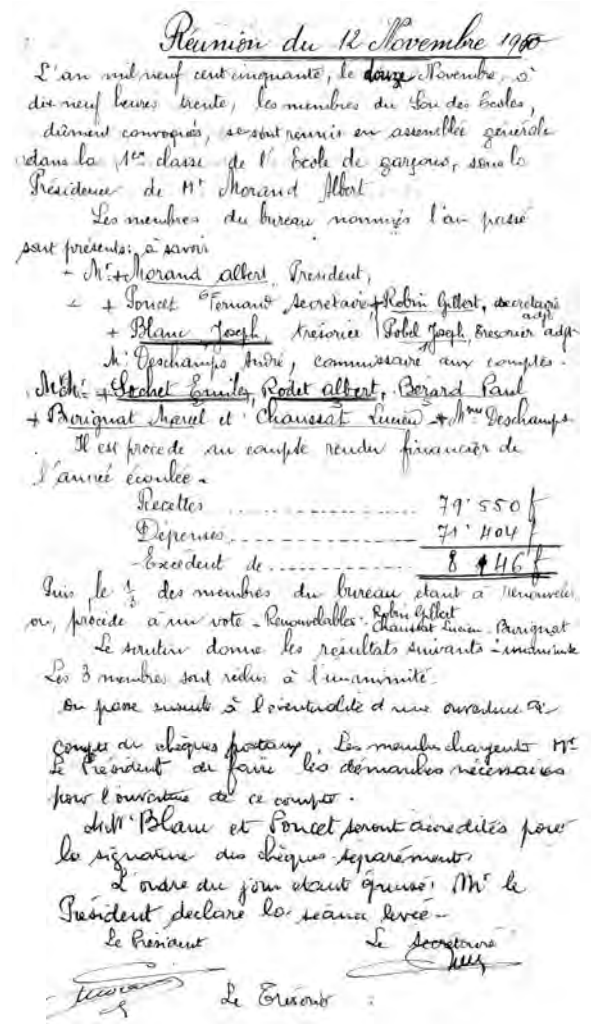 Réunion du 12 Novembre 1950
L'an mil neuf cent cinquante, le douze Novembre, à
dix-neuf heures trente, les membres du Sou des Ecoles,
dûment convoqués, se sont réunis en assemblée générale
dans la 1ère classe de l'Ecole de garçons, sous la
Présidence de Mr Morand Albert
Les membres du bureau nommés l'an passé
sont présents; à savoir
- Mr + Morand albert Président,
- + Poncet Fernand secrétaire + Robin Gilbert, secrétaire adjt
+ Blanc Joseph, trésorier Pobel Joseph, trésorier adjt
M. Deschamps André, commissaire aux comptes -
M.M. + Sochet Emile, Rodet albert, Berard Paul
+ Burignat Marcel et Chaussat Lucien + Mme Deschamps
Il est procédé au compte rendu financier de
l'année écoulée -
Recettes .................... 79'550 f
Dépenses .................... 71'404 f
Excédent de ............ 8 146 f
Puis le 1/3 des membres du bureau étant à renouveler
on procède à un vote - Renouvelables: Robin Gilbert
Chaussat Lucien - Burignat
Le scrutin donne les résultats suivants : unanimité
Les 3 membres sont réélus à l'unanimité.
On passe ensuite à l'éventualité d'une ouverture de
compte de chèques postaux. Les membres chargent Mr
Le Président de faire les démarches nécessaires
pour l'ouverture de ce compte.
M.M. Blanc et Poncet seront accrédités pour
la signature des chèques séparément.
L'ordre du jour étant épuisé, Mr le
Président déclare la séance levée -
Le Président Le Secrétaire
Le Trésorier :